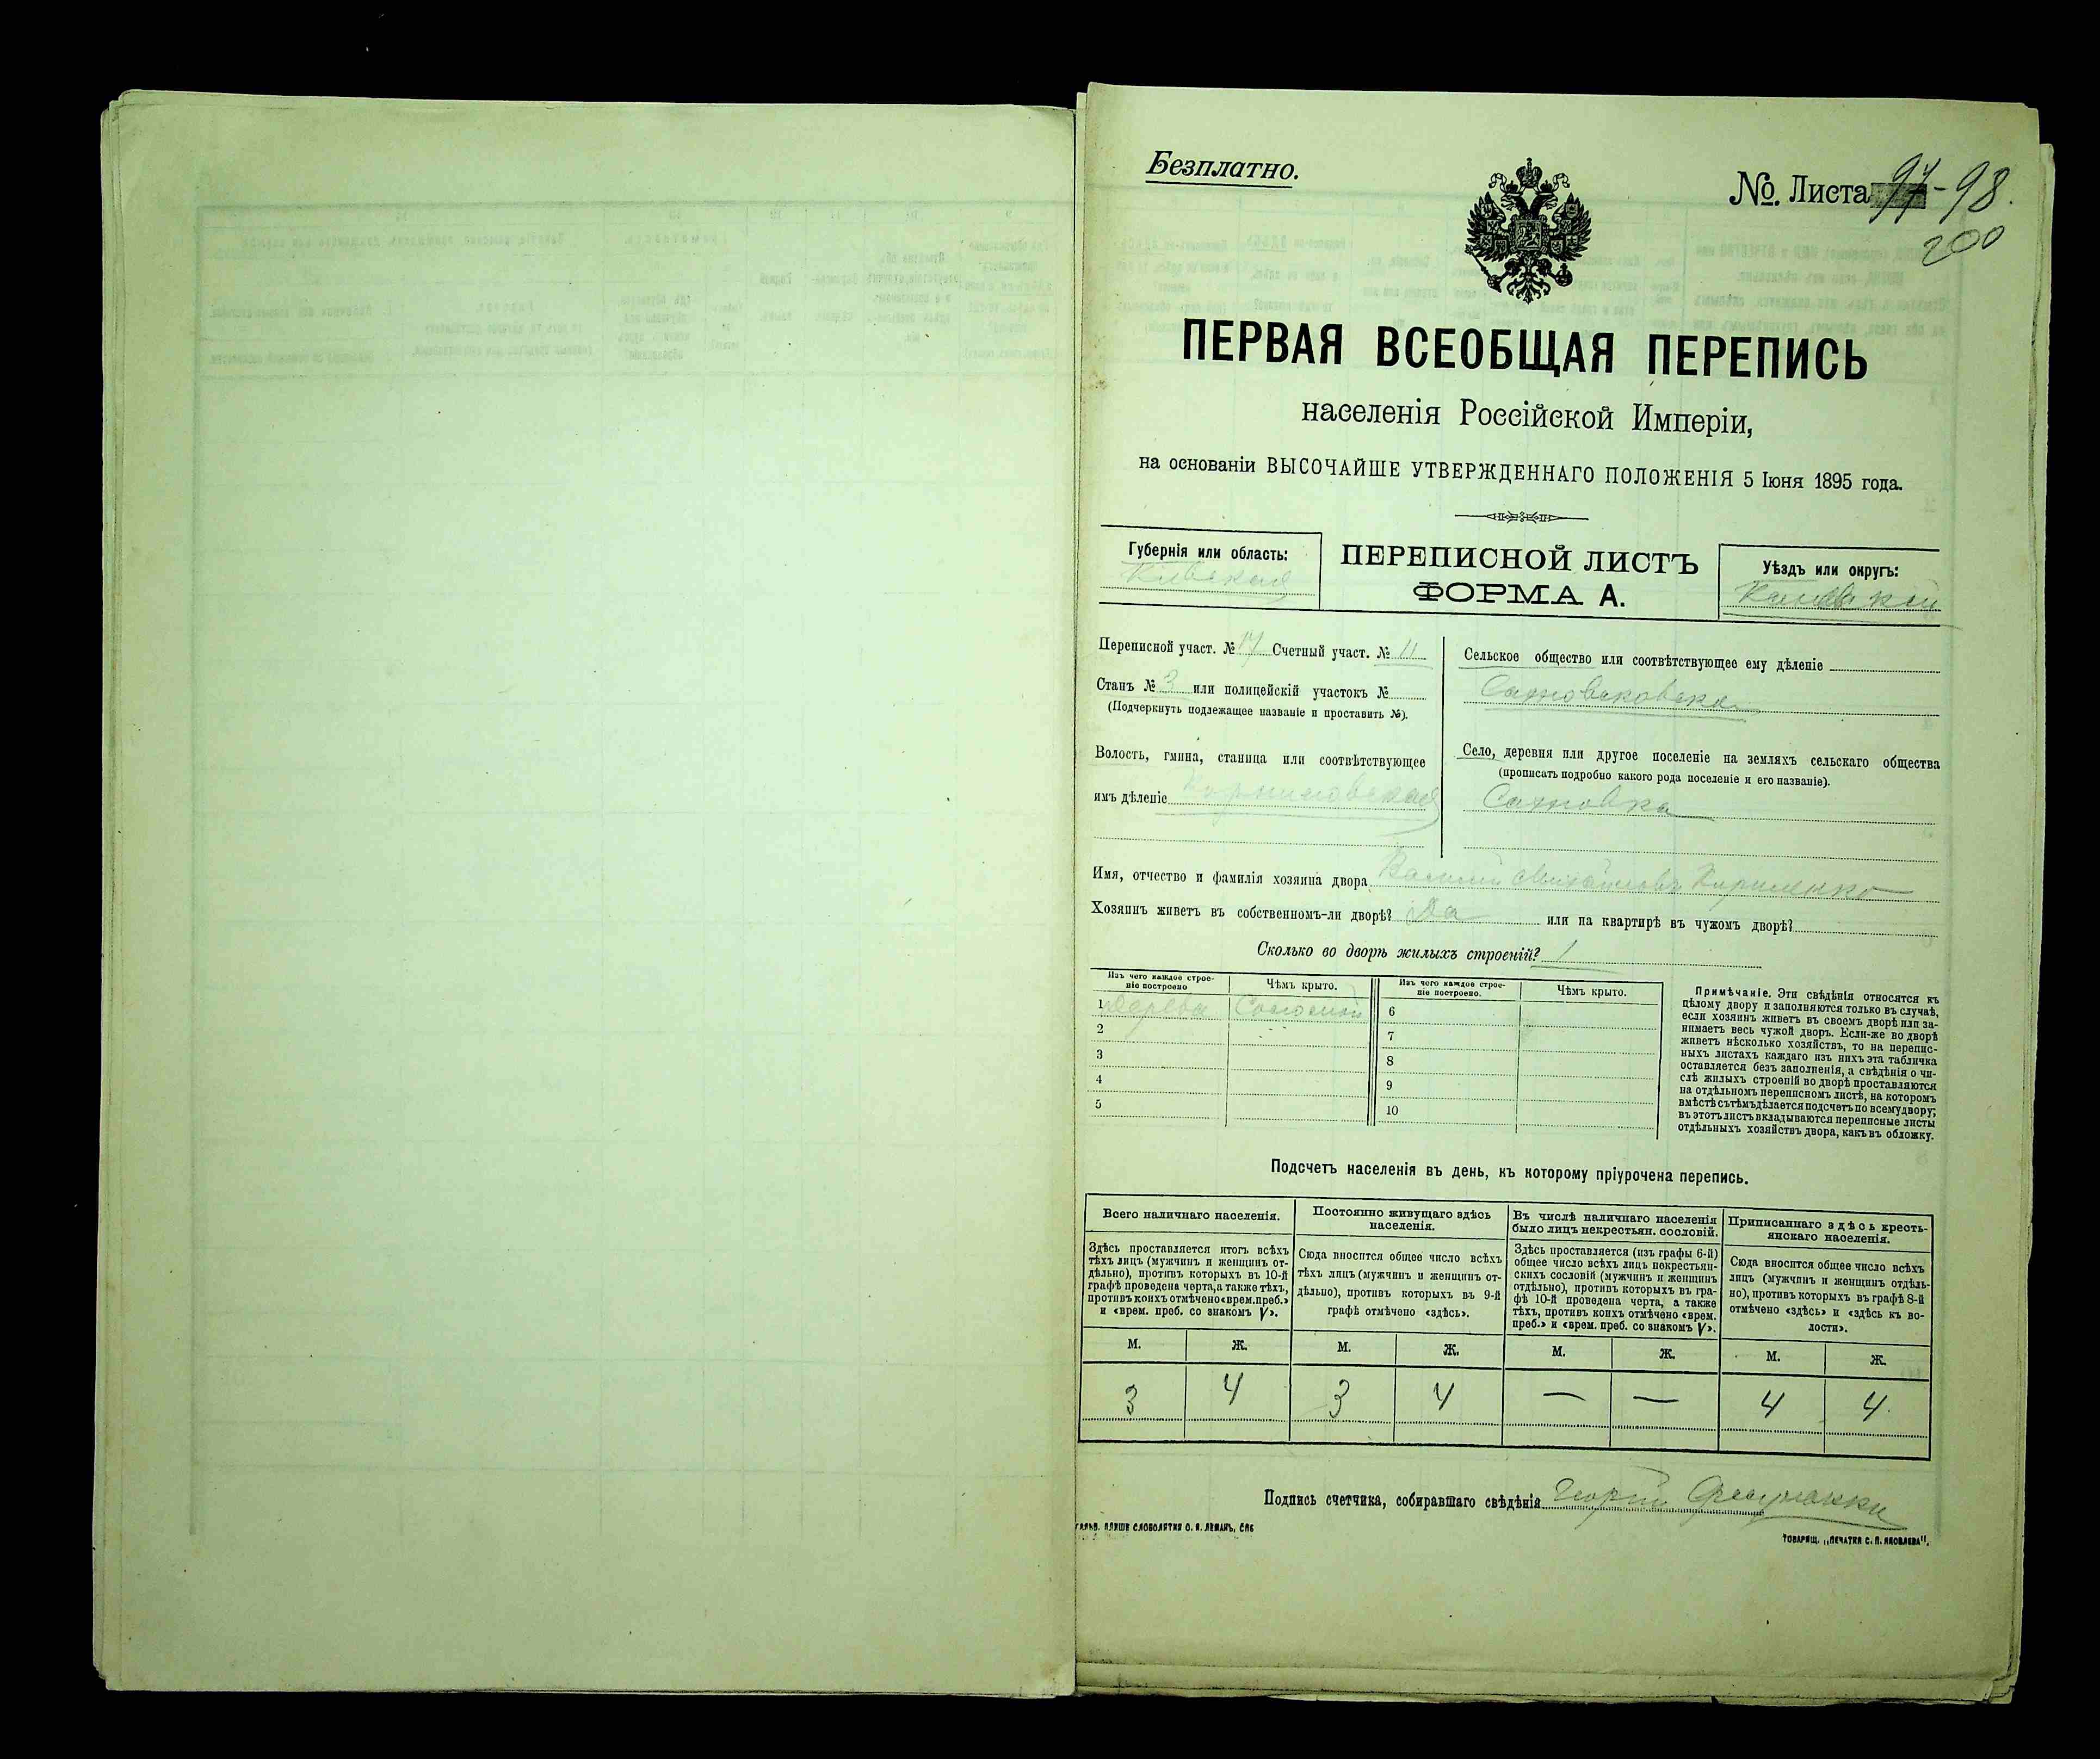 Безплатно.
№. Листа 97-98.
200
ПЕРВАЯ ВСЕОБЩАЯ ПЕРЕПИСЬ
населенія Россійской Имперіи,
на основаніи ВЫСОЧАЙШЕ УТВЕРЖДЕННАГО ПОЛОЖЕНІЯ 5 Іюня 1895 года.
Губернія или область:
Кіевская
ПЕРЕПИСНОЙ ЛИСТЪ
ФОРМА А.
Уѣздъ или округъ:
Каневскій
Переписной участ. № 17 Счетный участ. № 11
Станъ № 3 или полицейскій участокъ №
(Подчеркнуть подлежащее названіе и проставить №).
Волость, гмина, станица или соотвѣтствующее
имъ дѣленіе
Сельское общество или соотвѣтствующее ему дѣленіе
Село, деревня или другое поселеніе на земляхъ сельскаго общества
(прописать подробно какого рода поселеніе и его названіе).
Сахновка
Имя, отчество и фамилія хозяина двора Василій Михайловъ Кириленко
Хозяинъ живетъ въ собственномъ-ли дворѣ? Да или на квартирѣ въ чужомъ дворѣ?
Сколько во дворѣ жилыхъ строеній? 1
Изъ чего каждое строе-
ніе построено
Чѣмъ крыто.
Изъ чего каждое строе-
ніе построено.
Чѣмъ крыто.
1 Дерева Соломой
2
3
4
5
6
7
8
9
10
Примѣчаніе. Эти свѣдѣнія относятся къ
цѣлому двору и заполняются только въ случаѣ,
если хозяинъ живетъ въ своемъ дворѣ или за-
нимаетъ весь чужой дворъ. Если-же во дворѣ
живетъ нѣсколько хозяйствъ, то на перепис-
ныхъ листахъ каждаго изъ нихъ эта табличка
оставляется безъ заполненія, а свѣдѣнія о чи-
слѣ жилыхъ строеній во дворѣ проставляются
на отдѣльномъ переписномъ листѣ, на которомъ
вмѣстѣ съ тѣмъ дѣлается подсчетъ по всему двору;
въ этотъ листъ вкладываются переписные листы
отдѣльныхъ хозяйствъ двора, какъ въ обложку.
Подсчетъ населенія въ день, къ которому пріурочена перепись.
Всего наличнаго населенія.
Здѣсь проставляется итогъ всѣхъ
тѣхъ лицъ (мужчинъ и женщинъ от-
дѣльно), противъ которыхъ въ 10-й
графѣ проведена черта, а также тѣхъ,
противъ коихъ отмѣчено «врем. преб.»
и «врем. преб. со знакомъ V».
Постоянно живущаго здѣсь
населенія.
Сюда вносится общее число всѣхъ
тѣхъ лицъ (мужчинъ и женщинъ от-
дѣльно), противъ которыхъ въ 9-й
графѣ отмѣчено «здѣсь».
Въ числѣ наличнаго населенія
было лицъ некрестьян. сословій.
Здѣсь проставляется (изъ графы 6-й)
общее число всѣхъ лицъ некрестьян-
скихъ сословій (мужчинъ и женщинъ
отдѣльно), противъ которыхъ въ гра-
фѣ 10-й проведена черта, а также
тѣхъ, противъ коихъ отмѣчено «врем.
преб.» и «врем. преб. со знакомъ V».
Приписаннаго здѣсь кресть-
янскаго населенія.
Сюда вносится общее число всѣхъ
лицъ (мужчинъ и женщинъ отдѣль-
но), противъ которыхъ въ графѣ 8-й
отмѣчено «здѣсь» и «здѣсь къ во-
лости».
М. Ж. М. Ж. М. Ж. М. Ж.
3 4 3 4 — — 4 4
Подпись счетчика, собиравшаго свѣдѣнія Георгій
ГАЛЬВ. КЛИШЕ СЛОВОЛИТНИ О. И. ЛЕМАНЪ, СПБ
ТОВАРИЩ. „ПЕЧАТНЯ С. П. ЯКОВЛЕВА".